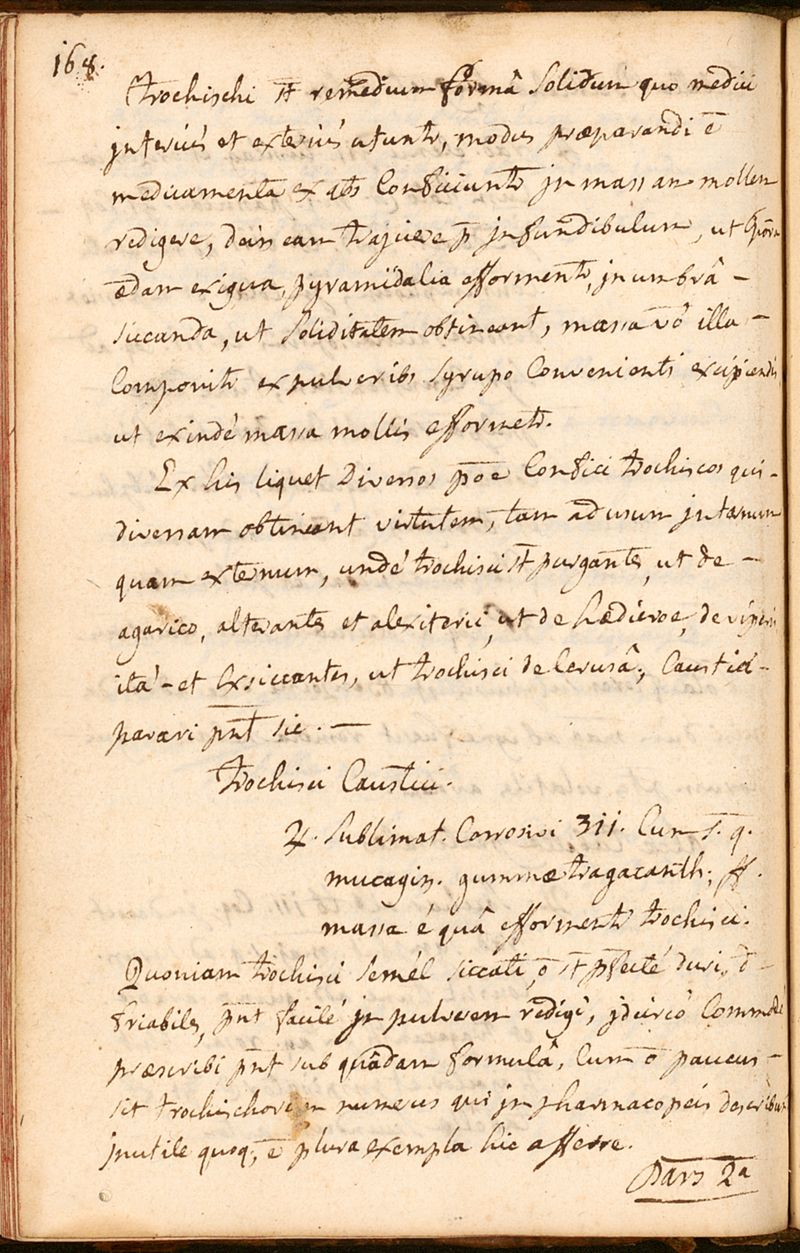 168.
Trochischi st remedium formâ Solidum quo medici
jnteriùs et exteriùs utuntr, modus præparandi ē
medicamenta ex qbs Conficiuntr jn massam mollem
redigere, dein eam trajicere p jnfundibulum, ut
ædam exigua, pyramidalia efformentr, jn umbrâ -
siccanda, ut Soliditatem obtineant, massa vô illa -
Componitr ex pulveribs Syrupo Convenienti excipiendis
ut exindé massa mollis efformetr.
Ex his liquet Diversos pōe Confici trochiscos qui -
diversam obtineant virtutem, tam ad usum jnternum
quam externum, undé trochisci st purgantes, ut de -
agarico, alterantes et alexiterii, ut de hædicroe, de viperis
ità - et Exsiccantes, ut trochisci de Cerusâ; Caustici -
parari pnt sic. -
Trochisci Caustici.
♃. Sublimat. Corrosivi ʒii. Cum s. q.
mucagin. gummæ tragacanth; ff.
massa é quâ efformentr trochisci.
Quoniam trochisci Semél siccati, ō st pfecté duri, &
friabiles, pnt facilé jn pulverem redigi, jdcircô Commodé
præscribi pnt sub quâdam formulâ, Cum ō paucus -
sit trochischorum numerus qui jn pharmacopeis describunt
jnutile quoq; ē plura exempla hic afferre.
Pars 2a